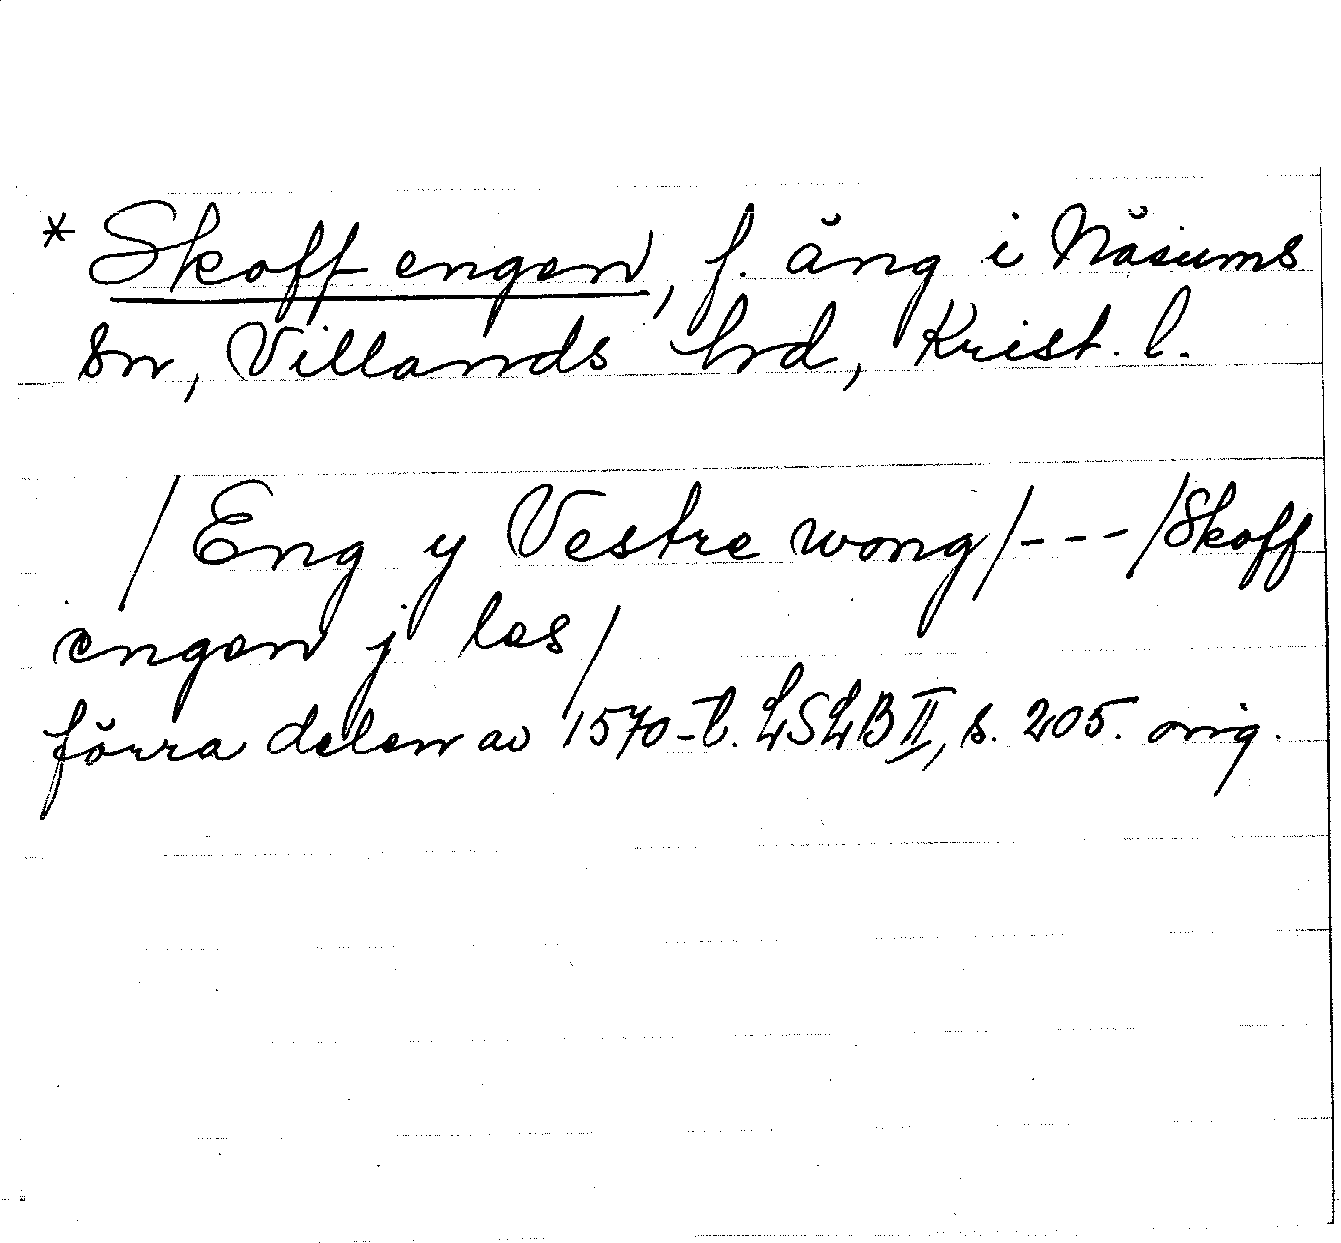 * Skoff engen, f. äng i Näsums
sn, Villands hrd, Krist. l.
/Eng y Vestre wong/---/Skoff
engen j les/
förra delen av 1570-t. LSLB II, s. 205. orig.